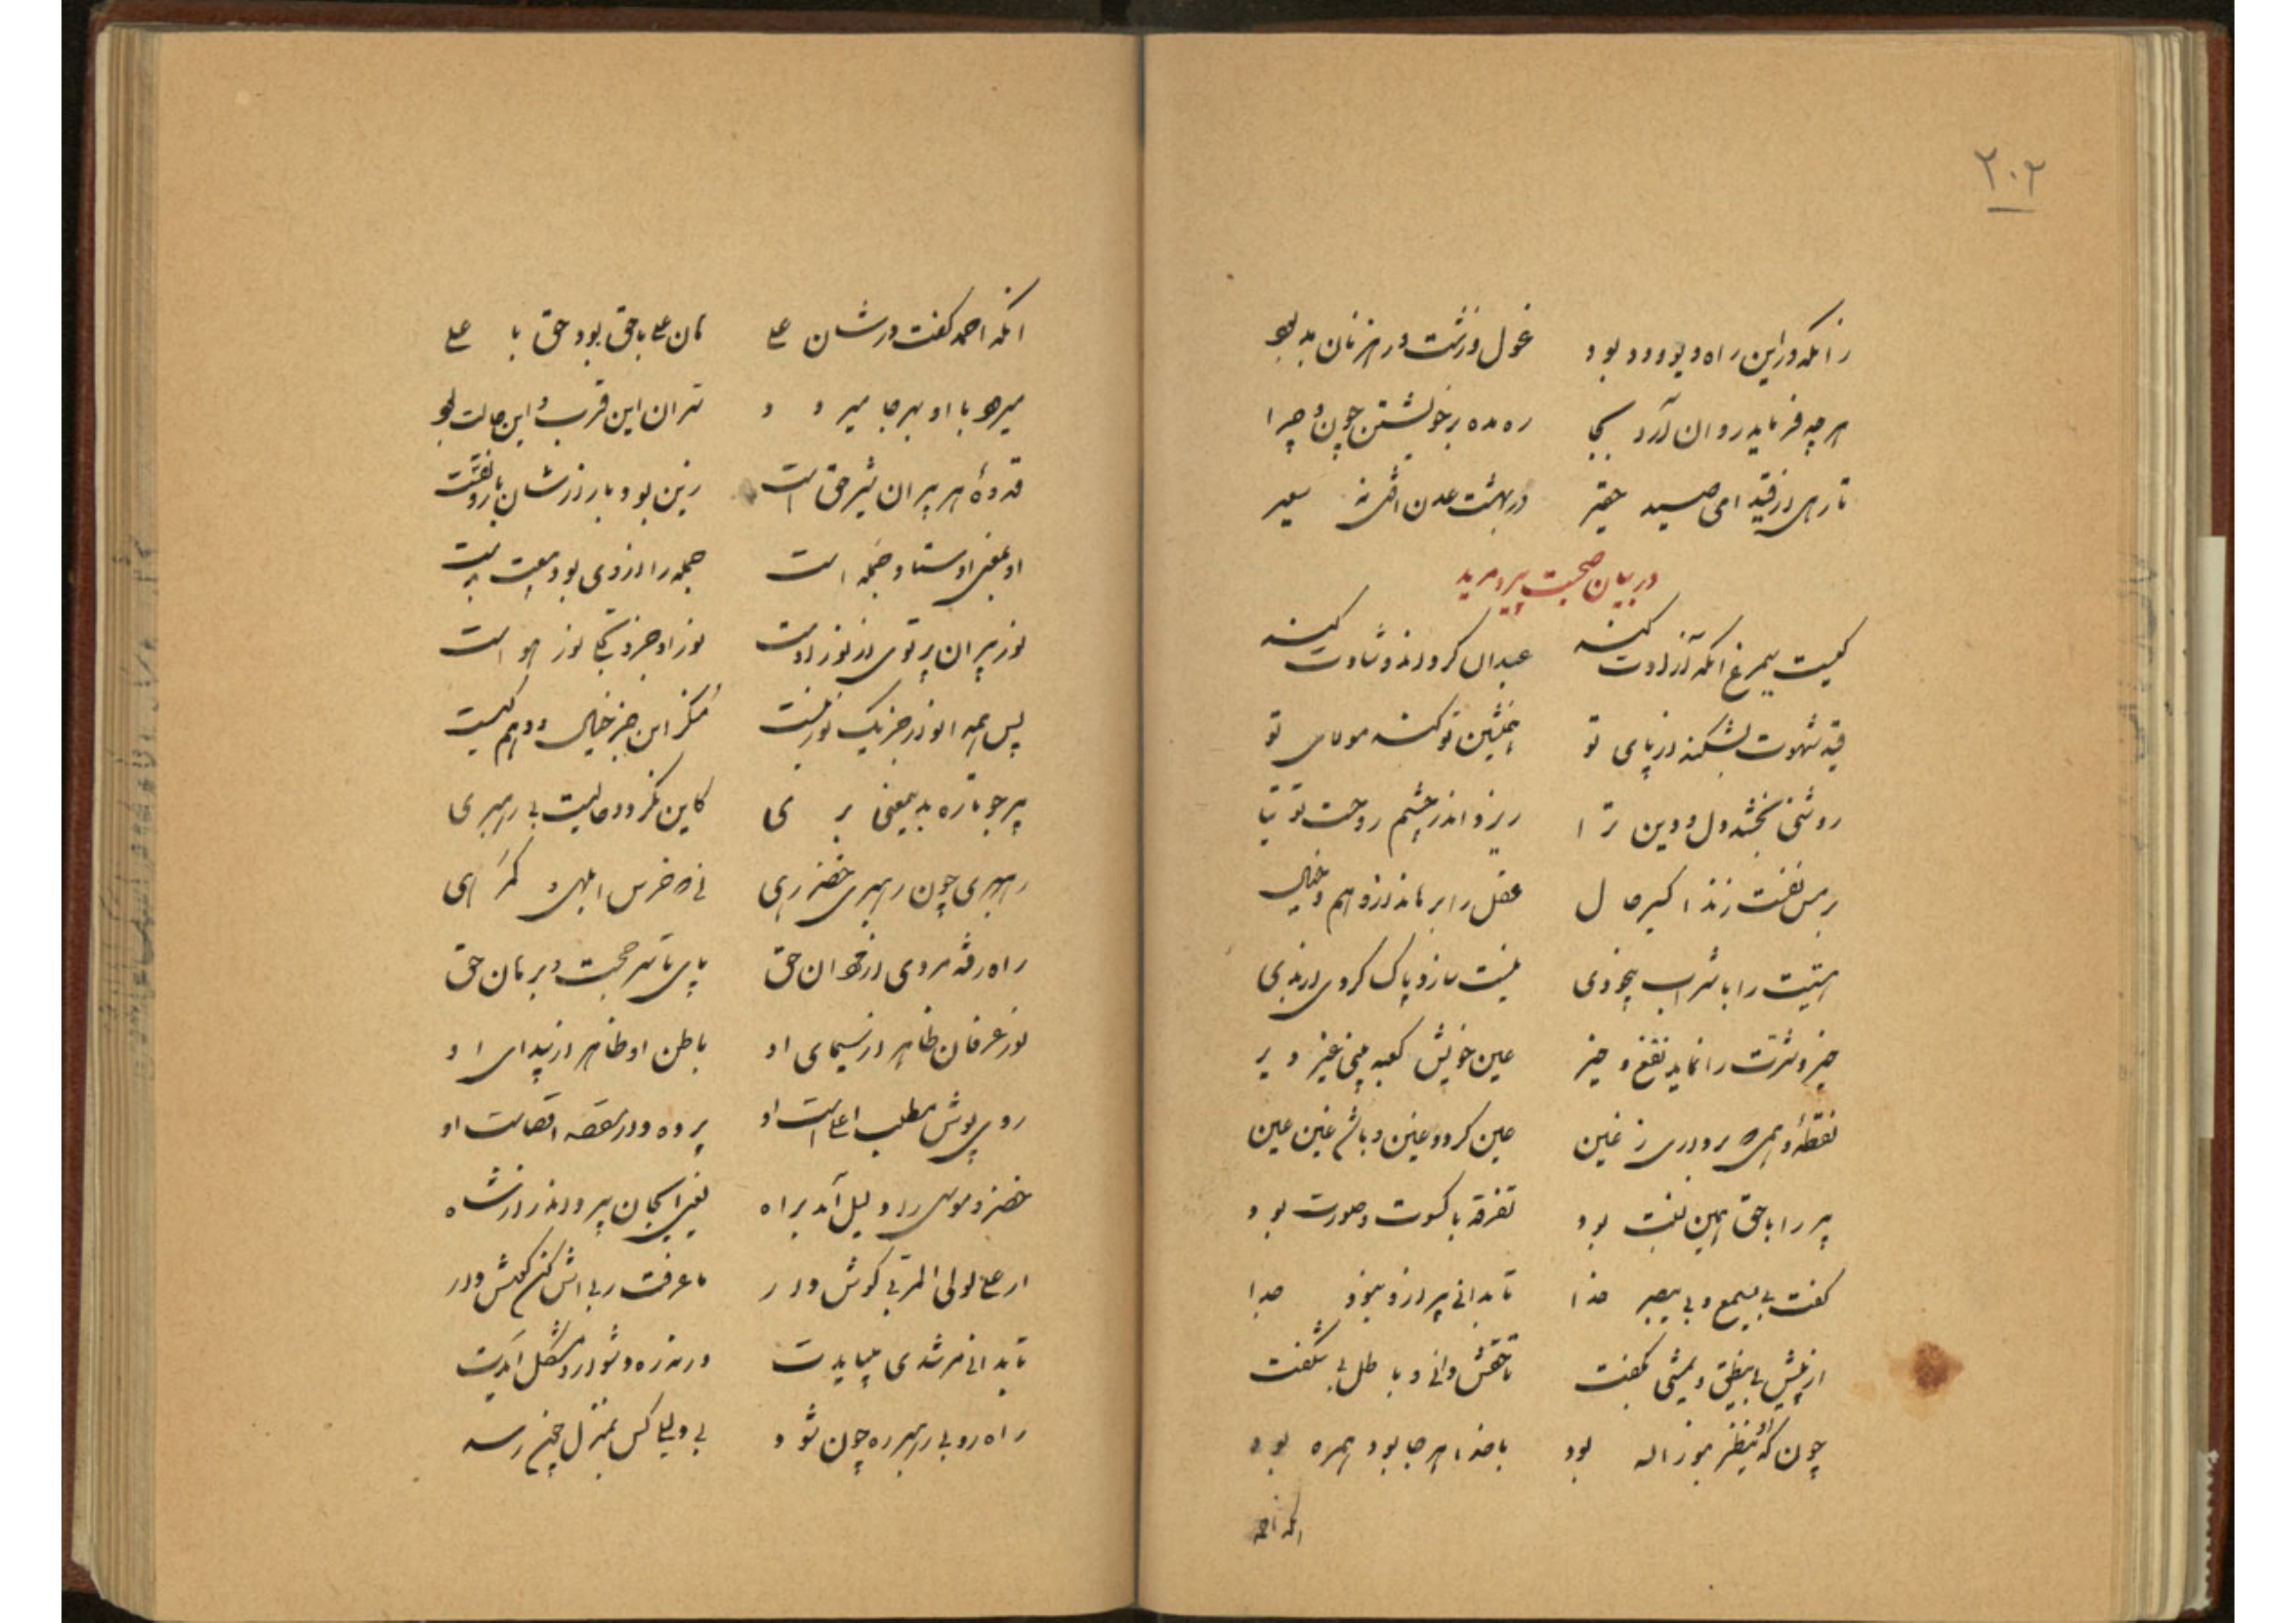 ۲۰۲
زانکه در این راه دیو و دد بود غول زشت و رهزنان بد بود
هر چه فرماید روان آرد بجا ره مده بر خویشتن چون و چرا
تا رهی از قید ای صید حقیر در بهشت عدن افتی نه سعیر
در بیان صحبت پیر و مرید
کیست سیمرغ آنکه آزادت کند عبدال کرداند و شادت کند
قید شهوت بشکند از پای تو همنشین تو کند مولای تو
روشنی بخشد دل و دین ترا ریزد اندر چشم روحت توتیا
بر مس نفست زند اکسیر حال عقل را برهاند از وهم و خیال
هستیت را با شراب بیخودی نیست سازد پاک کردی از بدی
خیر و شرت را نماید نفع و ضیر عین خویش کعبه بینی غیر دیر
نقطهٔ وهمی برداری ز غین عین کردد غین و باشم غین عین
پیر را با حق همین نسبت بود تفرقه با کسوت و صورت بود
گفت بی یسمع و بی یبصر خدا تا بدانی پیر از او نبود جدا
از پیش بی ینطق و یمشی بگفت تا حقش دانی و باطل بی شگفت
چون که او ینظر بنور اله بود با خدا هر جا بود همره بود
آنکه احمد
آنکه احمد گفت در شان علی کان علی با حق بود حق با علی
میرود با او بهر جا میرود سر آن این قرب و این حالت بود
قدوهٔ هر پیر آن شیر حق است زین بود بار ارزشان با رونقست
او بمعنی اوستاد جمله است جمله را از وی بود بیعت بدست
نور پیران پرتوی از نور اوست نور او جزو یکی نور هو است
پس همه انوار جز یک نور نیست منکر این جز خیال و وهم کیست
پیر جو تا ره به معنی بری کاین نگردد حالیت بی رهبری
رهبری چون رهبری خضر رهی نی خرس ابلهی گمرهی
راه رفته مردی از مردان حق پای تا سر حجت و برهان حق
نور عرفان ظاهر از سیمای او باطن او ظاهر از پیدای او
روی پوش مطلب اعلاست او پرده دار مقصد اقصاست او
خضر موسی را دلیل آمد براه یعنی ای جان پیر و اندرز شاه
از علی لولا المربی گوش دار ما عرفت ربی اش کن گوش دار
تا بدانی مرشدی میبایدت ورنه زه دشوار و مشکل آیدت
راه رو بی رهبر ره چون شود بی دلیل کس بمنزل چون رسد